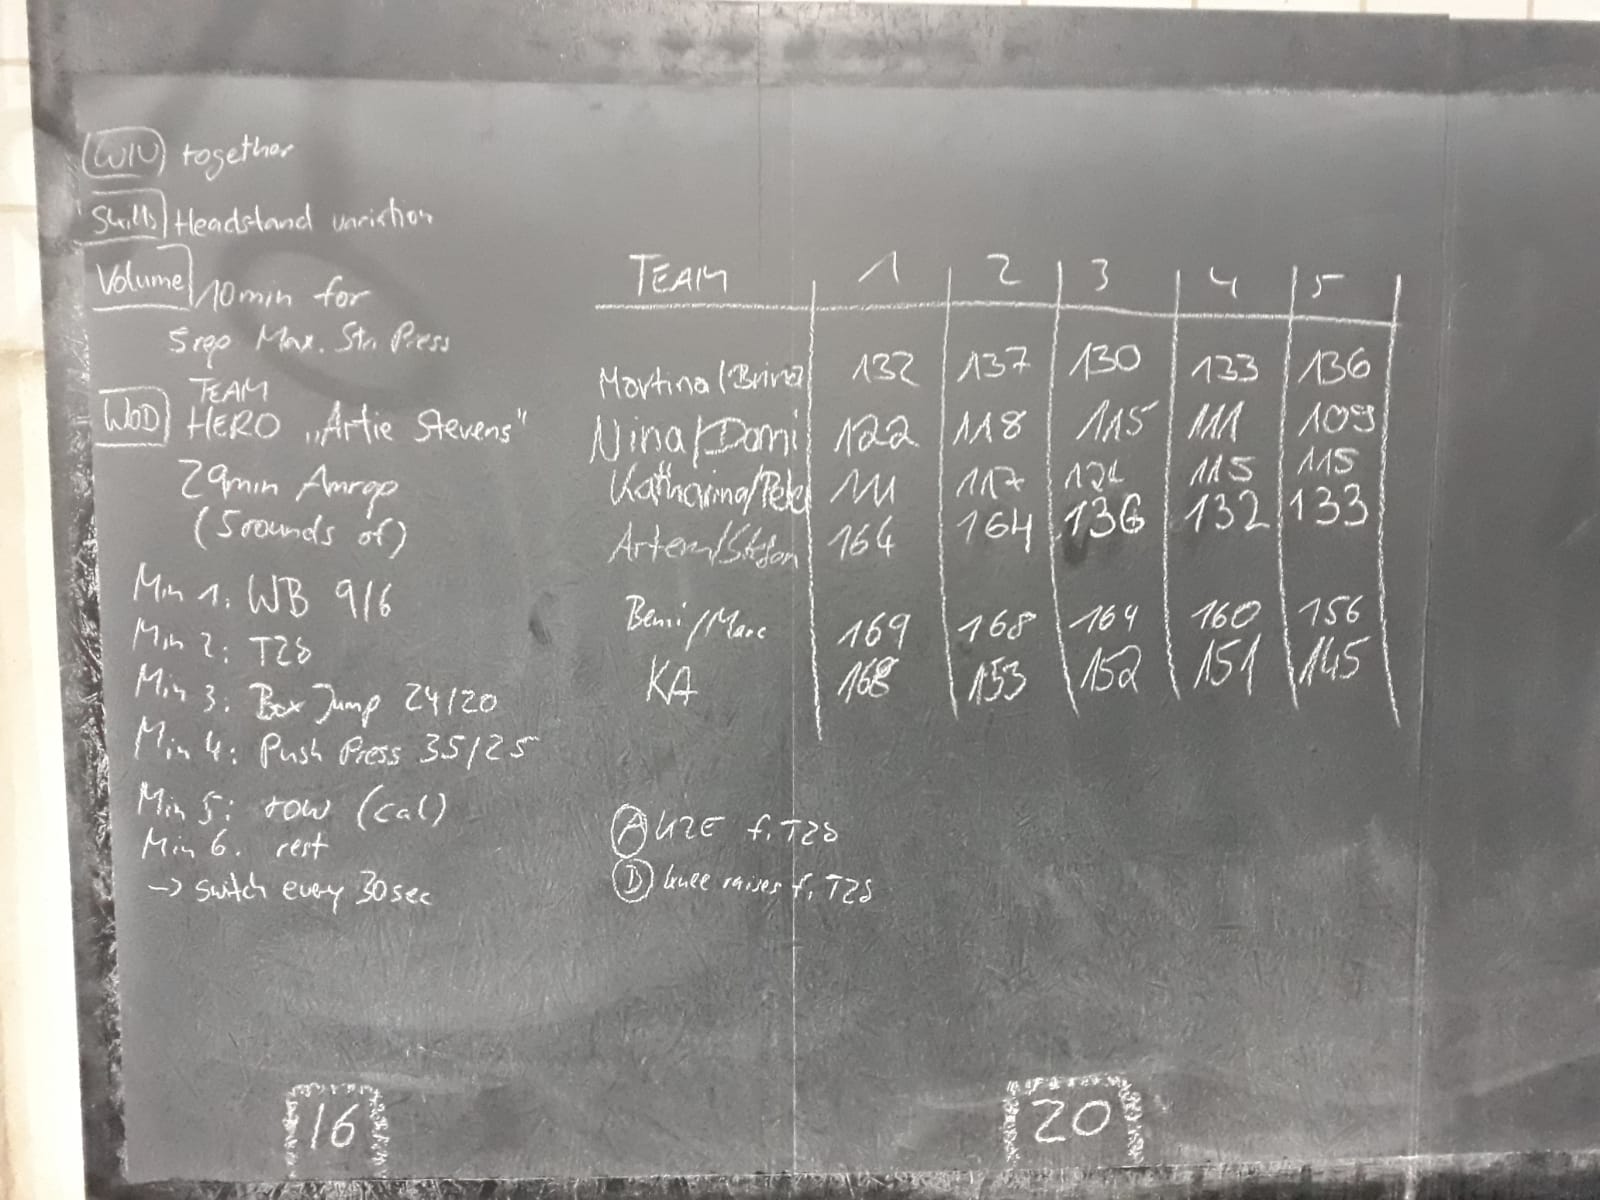 WU together
Skills Headstand variation
Volume 10min for
5rep Max. Str. Press
TEAM
WOD HERO „Artie Stevens"
29min Amrap
(5 rounds of)
Min 1: WB 9/6
Min 2: T2B
Min 3: Box Jump 24/20
Min 4: Push Press 35/25
Min 5: row (cal)
Min 6. rest
-> switch every 30sec
TEAM 1 2 3 4 5
Martina/Brina 132 137 130 133 136
Nina/Domi 122 118 115 111 109
Katharina/Peter 111 117 115 115
Artem/Stefan 164 164 136 132 133
Beni/Marc 169 168 164 160 156
KA 168 153 152 151 145
A K2E f. T2B
B knee raises f. T2B
16
20